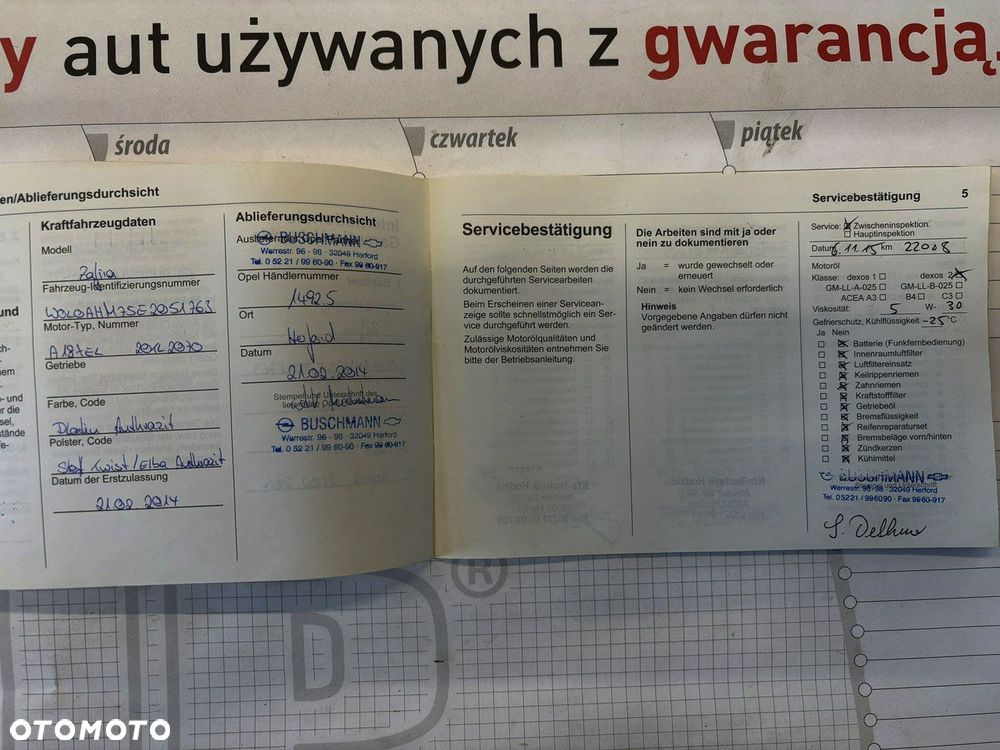 y aut używanych z gwarancją.
środa
czwartek
piątek
en/Ablieferungsdurchsicht
Kraftfahrzeugdaten
Modell
Zafira
Fahrzeug-Identifizierungsnummer
W0L0AHM75E2051763
Motor-Typ, Nummer
A18XEL 20ZL2070
Getriebe
Farbe, Code
Anthrazit
Polster, Code
Stoff Twist/Elba Anthrazit
Datum der Erstzulassung
21.02.2014
Ablieferungsdurchsicht
BUSCHMANN
Werrestr. 96 - 98 · 32049 Herford
Tel. 0 52 21 / 99 60-90 · Fax 99 60-917
Opel Händlernummer
14925
Ort
Herford
Datum
21.02.2014
Stempel und Unterschrift des
BUSCHMANN
Werrestr. 96 - 98 · 32049 Herford
Tel. 0 52 21 / 99 60-90 · Fax 99 60-917
Servicebestätigung
Auf den folgenden Seiten werden die
durchgeführten Servicearbeiten
dokumentiert.
Beim Erscheinen einer Servicean-
zeige sollte schnellstmöglich ein Ser-
vice durchgeführt werden.
Zulässige Motorölqualitäten und
Motorölviskositäten entnehmen Sie
bitte der Betriebsanleitung.
Die Arbeiten sind mit ja oder
nein zu dokumentieren
Ja = wurde gewechselt oder
erneuert
Nein = kein Wechsel erforderlich
Hinweis
Vorgegebene Angaben dürfen nicht
geändert werden.
Servicebestätigung 5
Service: Zwischeninspektion
Hauptinspektion
Datum 6.11.15 km 22008
Motoröl
Klasse: dexos 1 dexos 2
GM-LL-A-025 GM-LL-B-025
ACEA A3 B4 C3
Viskosität: 5 W- 30
Gefrierschutz, Kühlflüssigkeit -25°C
Ja Nein
Batterie (Funkfernbedienung)
Innenraumluftfilter
Luftfiltereinsatz
Keilrippenriemen
Zahnriemen
Kraftstofffilter
Getriebeöl
Bremsflüssigkeit
Reifenreparaturset
Bremsbeläge vorn/hinten
Zündkerzen
Kühlmittel
BUSCHMANN
Werrestr. 96 - 98 · 32049 Herford
Stempel und Unterschrift
Tel. 05221 / 996090 · Fax 9960-917
®
OTOMOTO